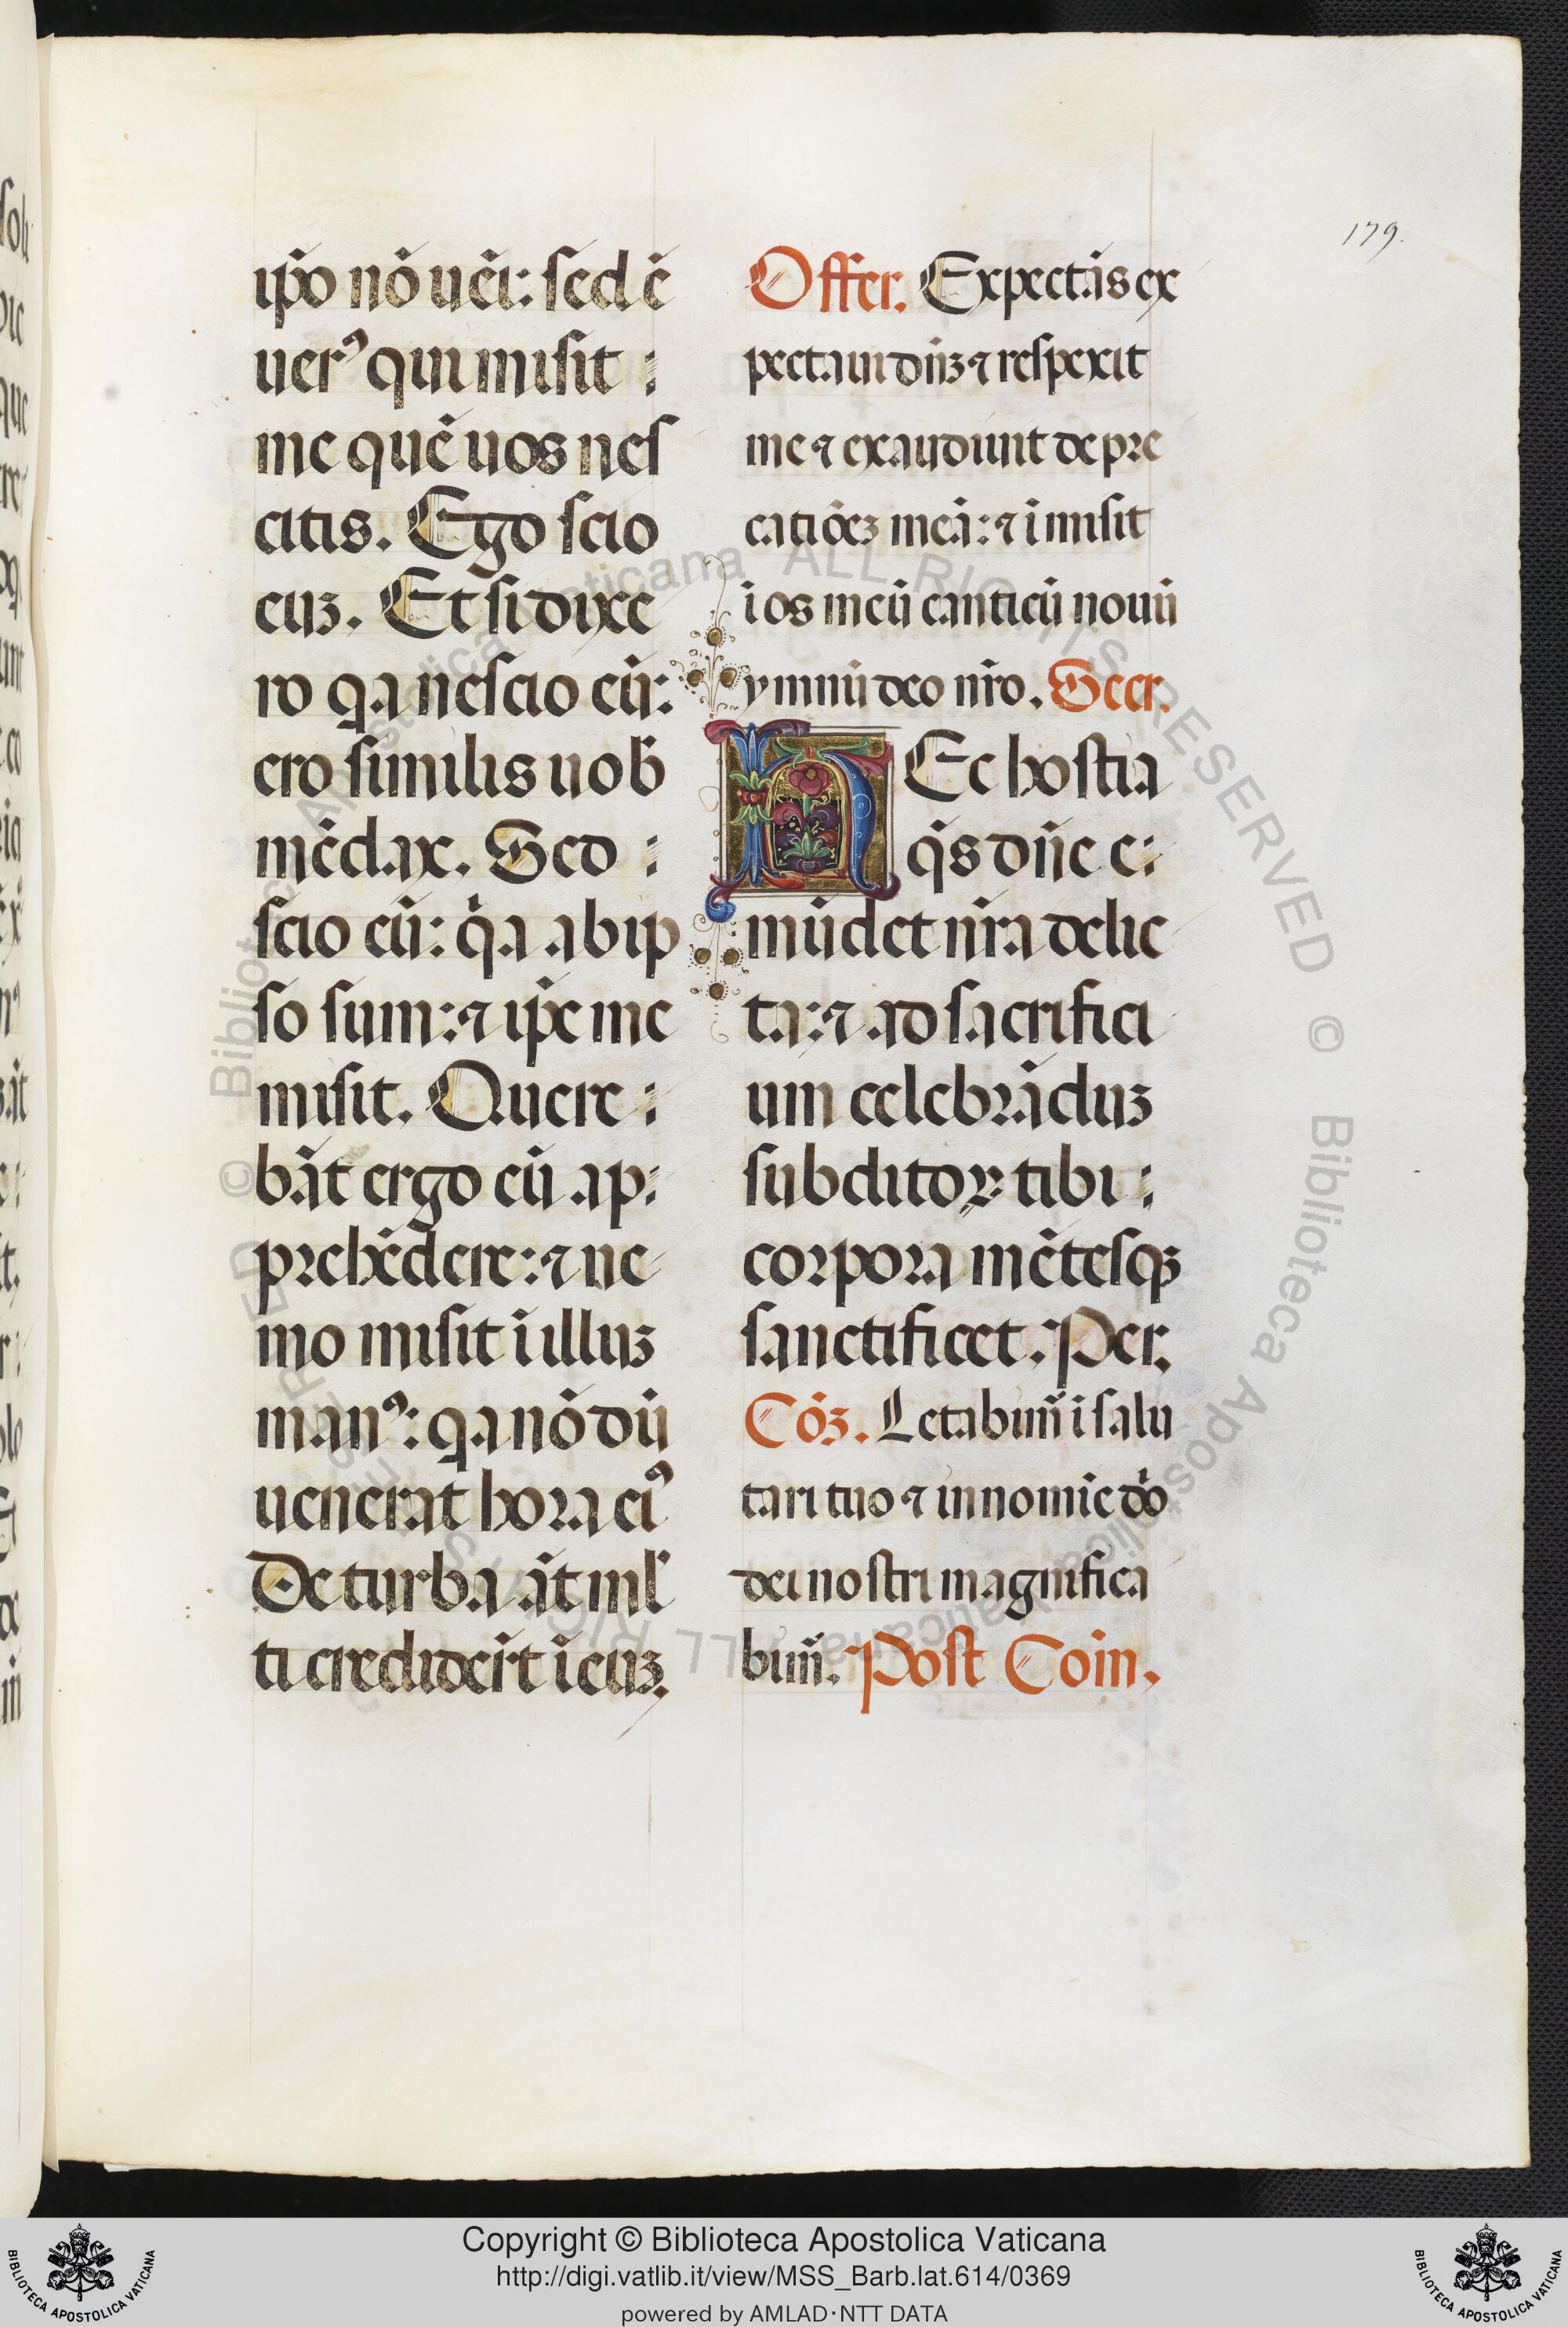 179.
ip̄o nō uēi: sed ē
uerꝰ qui misit :
me quē uos nes
citis. Ego scio
euꝫ. Et si dixe
ro qa nescio eū:
ero similis uob̄
mēdax. Sed :
scio eū: qa ab ip
so sum: ⁊ ip̄e me
misit. Quere :
bāt ergo eū ap:
prehēdere: ⁊ ne
mo misit ī illuꝫ
manꝰ: qa nōdū
uenerat hora eiꝰ
De turba āt ml̄
ti credidert̄ ī euꝫ.
Offer. Expectās ex
pectaui dn̄ꝫ ⁊ respexit
me ⁊ exaudiuit depre
catiōeꝫ meā: ⁊ īmisit
ī os meū canticū nouū
ymnū deo nr̄o. Secr.
HEc hostia
qs̄ dn̄e e:
mūdet nr̄a delic
ta: ⁊ ad sacrifici
um celebrāduꝫ
subditoꝝ tibi :
corpora mētesqꝫ
sanctificet. Per.
Cōꝫ. Letabim̄ ī salu
tari tuo ⁊ in nomīe dō
dei nostri magnifica
bim̄. Post Coīn.
Copyright © Biblioteca Apostolica Vaticana
http://digi.vatlib.it/view/MSS_Barb.lat.614/0369
powered by AMLAD·NTT DATA
BIBLIOTECA APOSTOLICA VATICANA
BIBLIOTECA APOSTOLICA VATICANA